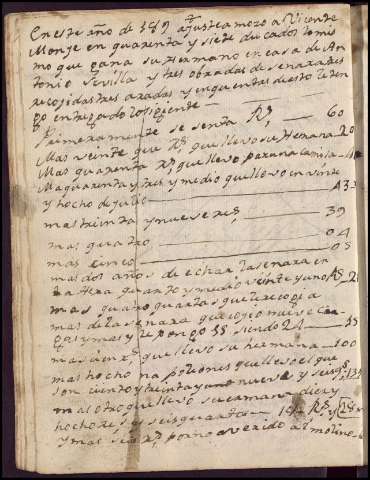 En este año de 389 ajuste a mozo a Vicente
Monje en quarenta y siete ducados lo mis
mo que gana su Hermano en casa de An
tonio Sevilla y tres obradas de senara tres
recojidas tres aradas y en quenta de esto le ten
go entregado lo siguiente
Primeramente se senta Rs 60
Mas veinte que Rs que llevo su Hermana 20
Mas quarenta Rs que llevo para una camisa
Ma quarenta y tres y medio que llevo en veinte
y hocho de julio 43
mas treinta y nueve res 39
mas quatro 04
mas cinco 05
mas dos años de echar la senara en
quarto y medio veinte y uno
mas quatro quartas que le
mas de la senara que cojio nueve
gas y mas y le pongo 38 siendo 38
mas cien Rs que llevo su hermana 100
mas hocho na poleones que llevo el que
son ciento y treinta y uno nueve y seis
mas otro que llevo su ermana diez y
hocho res y seis quartos 19 Rs y 28
y mas seis Rs por no aver ido al molino